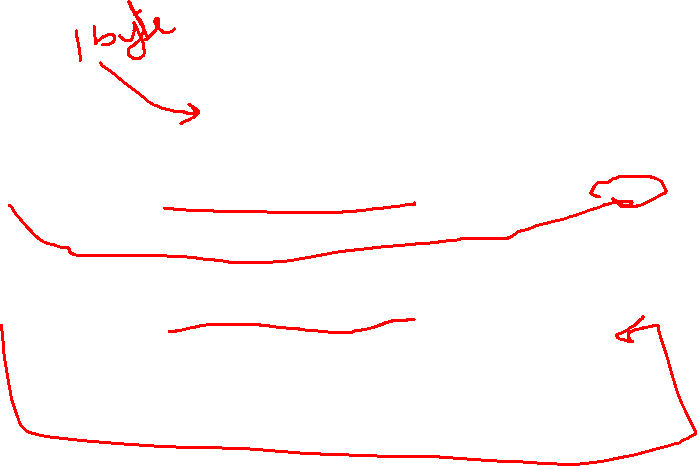 1 byte